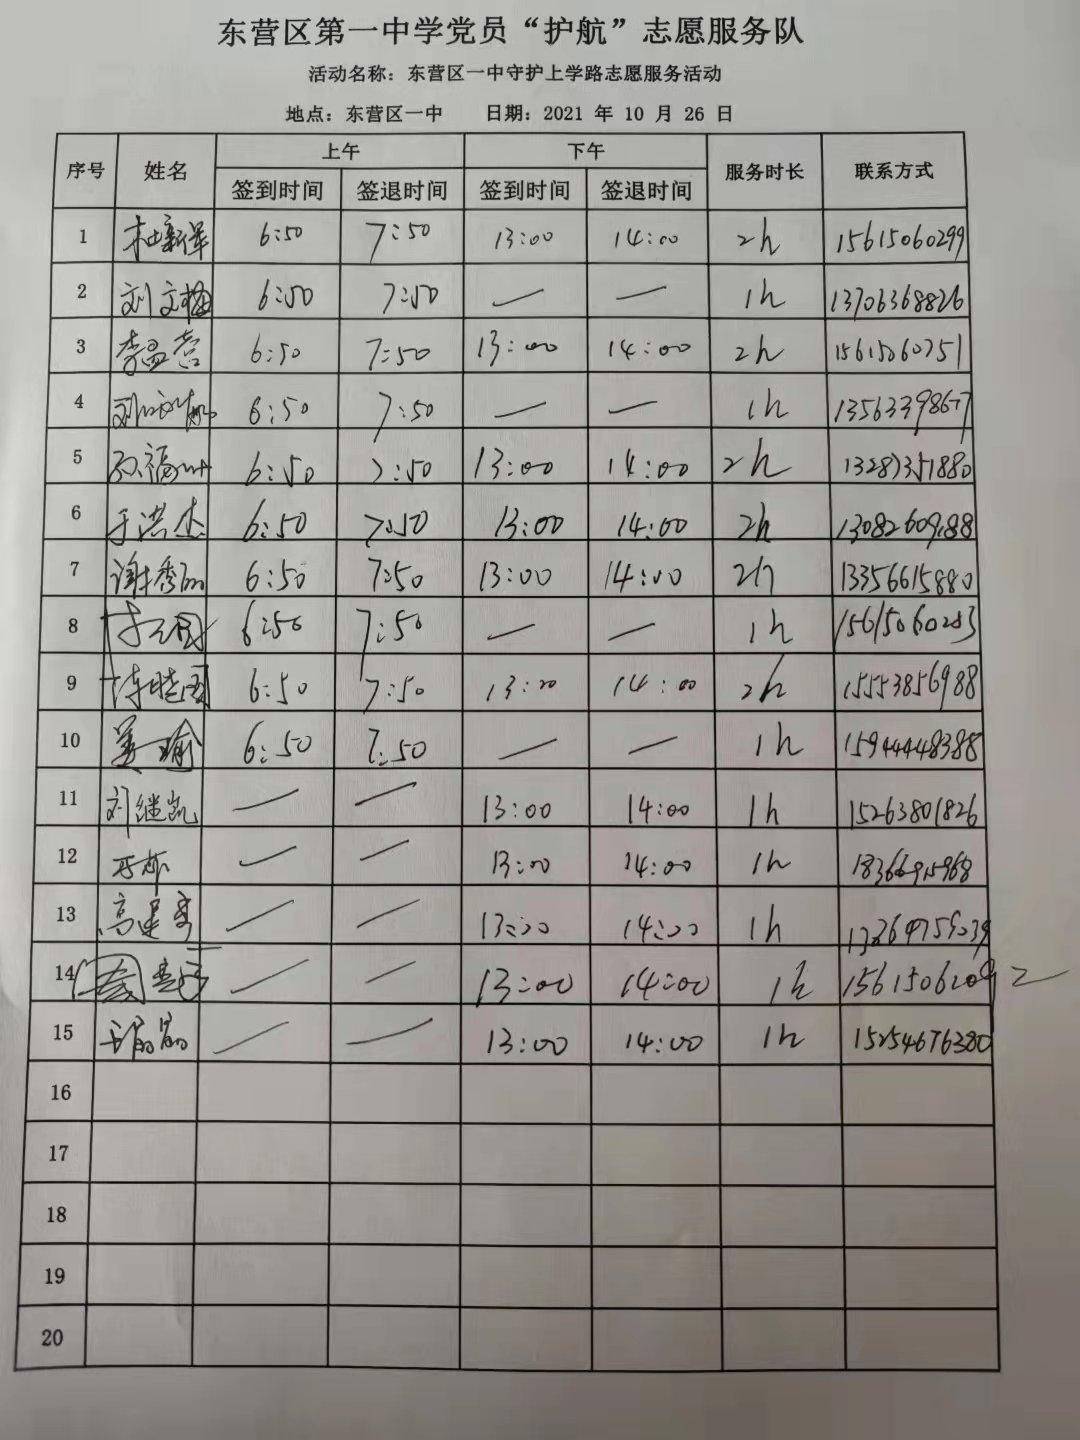 东营区第一中学党员“护航”志愿服务队
活动名称：东营区一中守护上学路志愿服务活动
地点：东营区一中 日期：2021 年 10 月 26 日
序号 姓名 上午 下午 服务时长 联系方式
签到时间 签退时间 签到时间 签退时间
1 杜新军 6:50 7:50 13:00 14:00 2h 15615060299
2 刘文梅 6:50 7:50 — — 1h 13706368826
3 李孟营 6:50 7:50 13:00 14:00 2h 15615060751
4 6:50 7:50 — — 1h
5 6:50 7:50 13:00 14:00 2h 13287351880
6 于洪杰 6:50 7:50 13:00 14:00 2h 13082609188
7 谢秀丽 6:50 7:50 13:00 14:00 2h 13356615880
8 6:50 7:50 — — 1h
9 陈晓国 6:50 7:50 13:00 14:00 2h 15553856988
10 姜瑜 6:50 7:50 — — 1h 15944448388
11 刘继凯 — — 13:00 14:00 1h 15263801826
12 — — 13:00 14:00 1h
13 — — 13:00 14:00 1h
14 — — 13:00 14:00 1h
15 — — 13:00 14:00 1h 15254676380
16
17
18
19
20